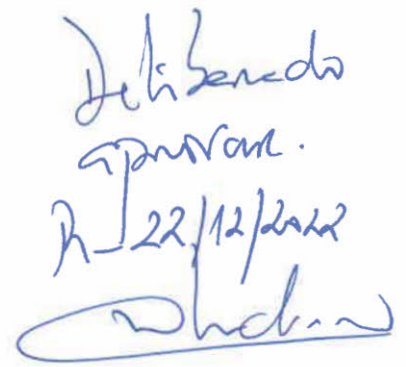 Deliberado
aprovar.
R_22/12/2022